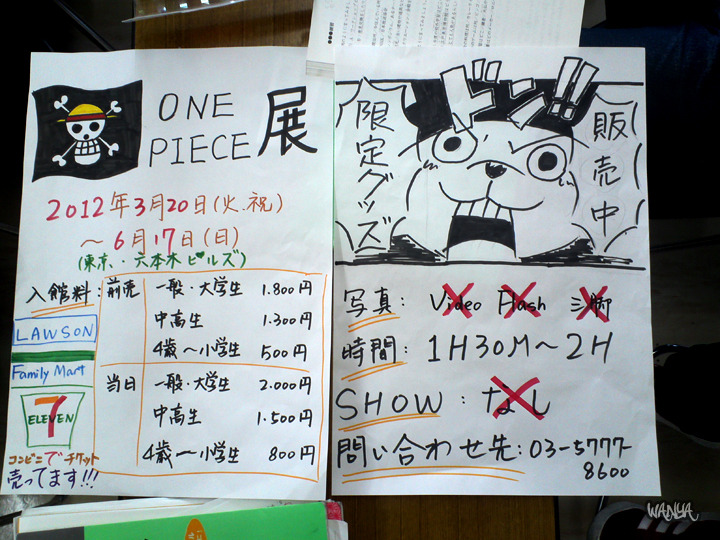 ONE
PIECE 展
2012年3月20日(火.祝)
〜6月17日(日)
(東京、六本木ヒルズ)
入館料: 前売 一般・大学生 1.800円
中高生 1.300円
4歳〜小学生 500円
当日 一般・大学生 2.000円
中高生 1.500円
4歳〜小学生 800円
LAWSON
Family Mart
7
ELEVEN
コンビニでチケット
売ってます!!!
ドン!!
限定グッズ
販売中
写真: Video Flash 三脚
時間: 1H30M〜2H
SHOW: なし
問い合わせ先: 03-5777-
8600
WANYA